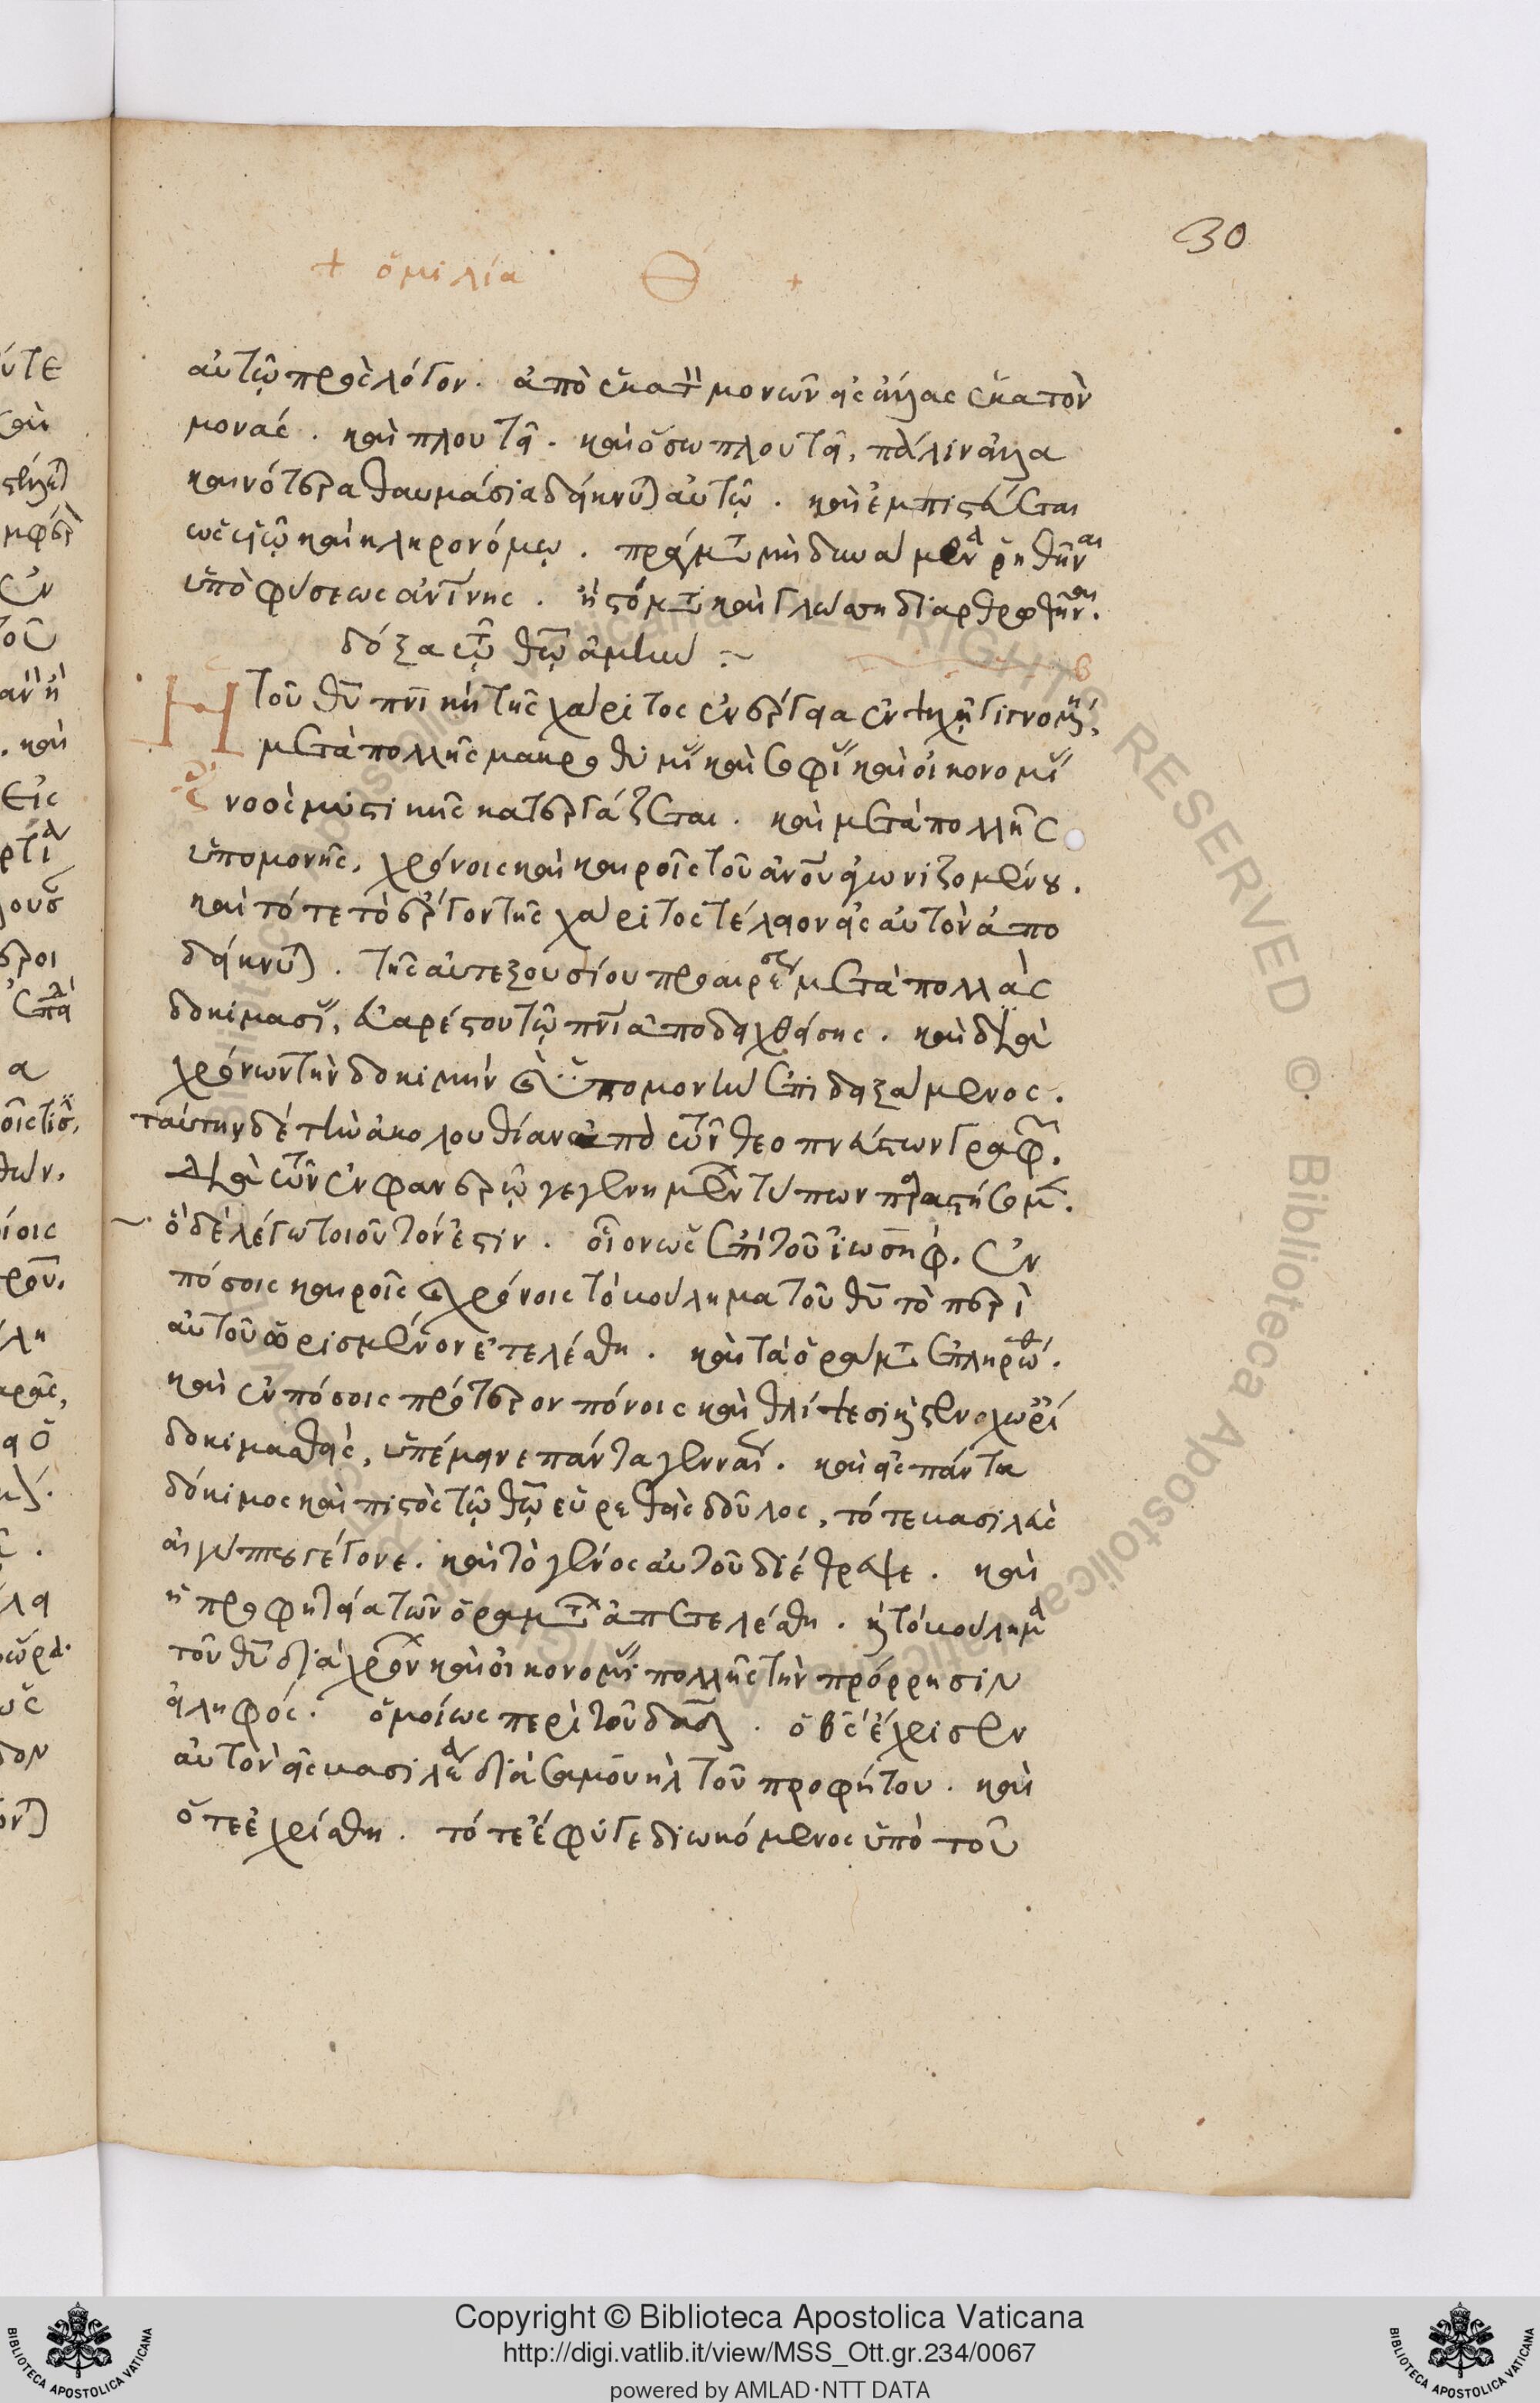 30
+ ὁμιλία Θ +
αὐτῷ πρὸς λόγον. ἀπὸ ἑκατὸν μονῶν εἰς ἄλλας ἑκατὸν
μονάς. καὶ πλουτεῖ. καὶ ὅσω πλουτεῖ, πάλιν ἄλλα
καινότερα θαυμάσια δείκνυται αὐτῷ. καὶ ἐμπιστεύεται
ὡς υἱῷ καὶ κληρονόμῳ. πράγματα μὴ δυνάμενα ῥηθῆναι
ὑπὸ φύσεως ἀνθρωπίνης. ἢ στόματι καὶ γλώσση διαρθρωθῆναι.
δόξα τῷ θῶ ἀμήν :~
β
Ἡ τοῦ θῦ πνικὴ τῆς χάριτος ἐνέργεια ἐν ψυχῇ γιγνομένη,
μετὰ πολλῆς μακροθυμίας καὶ σοφίας καὶ οἰκονομίας
νοὸς μυστικῆς κατεργάζεται. καὶ μετὰ πολλῆς
ὑπομονῆς, χρόνοις καὶ καιροῖς τοῦ ἀνοῦ ἀγωνιζομένου.
καὶ τότε τὸ ἔργον τῆς χάριτος τέλειον εἰς αὐτὸν ἀπο
δείκνυται. τῆς αὐτεξουσίου προαιρέσεως μετὰ πολλὰς
δοκιμασίας, εὐαρέστου τῷ πνι ἀποδειχθείσης. καὶ διὰ
χρόνων τὴν δοκιμὴν καὶ ὑπομονὴν ἐπιδειξάμενος.
ταύτην δὲ τὴν ἀκολουθίαν ἀπὸ τῶν θεοπνεύστων γραφῶν.
διὰ τῶν ἐν φανερῷ γεγενημένων τύπων παραστήσομεν.
ὃ δὲ λέγω τοιοῦτόν ἐστιν. οἷον ὡς ἐπὶ τοῦ ἰωσήφ. ἐν
πόσοις καιροῖς καὶ χρόνοις τὸ βούλημα τοῦ θῦ τὸ περὶ
αὐτοῦ ὡρισμένον ἐτελέσθη. καὶ τὰ ὁράματα ἐπληρώθη.
καὶ ἐν πόσοις πρότερον πόνοις καὶ θλίψεσι καὶ στενοχωρίαις
δοκιμασθεὶς, ὑπέμεινε πάντα γενναίως. καὶ εἰς πάντα
δόκιμος καὶ πιστὸς τῷ θῶ εὑρεθεὶς δοῦλος, τότε βασιλεὺς
αἰγύπτου γέγονε. καὶ τὸ γένος αὐτοῦ διέθρεψε. καὶ
ἡ προφητεία τῶν ὁραμάτων ἀπετελέσθη. καὶ τὸ βούλημα
τοῦ θῦ διὰ χρόνων καὶ οἰκονομίας πολλῆς τὴν πρόρρησιν
εἰληφός. ὁμοίως περὶ τοῦ δαδ. ὁ θς ἔχρισεν
αὐτὸν εἰς βασιλέα διὰ σαμουὴλ τοῦ προφήτου. καὶ
ὅτε ἐχρίσθη. τότε ἔφυγε διωκόμενος ὑπὸ τοῦ
Copyright © Biblioteca Apostolica Vaticana
http://digi.vatlib.it/view/MSS_Ott.gr.234/0067
powered by AMLAD·NTT DATA